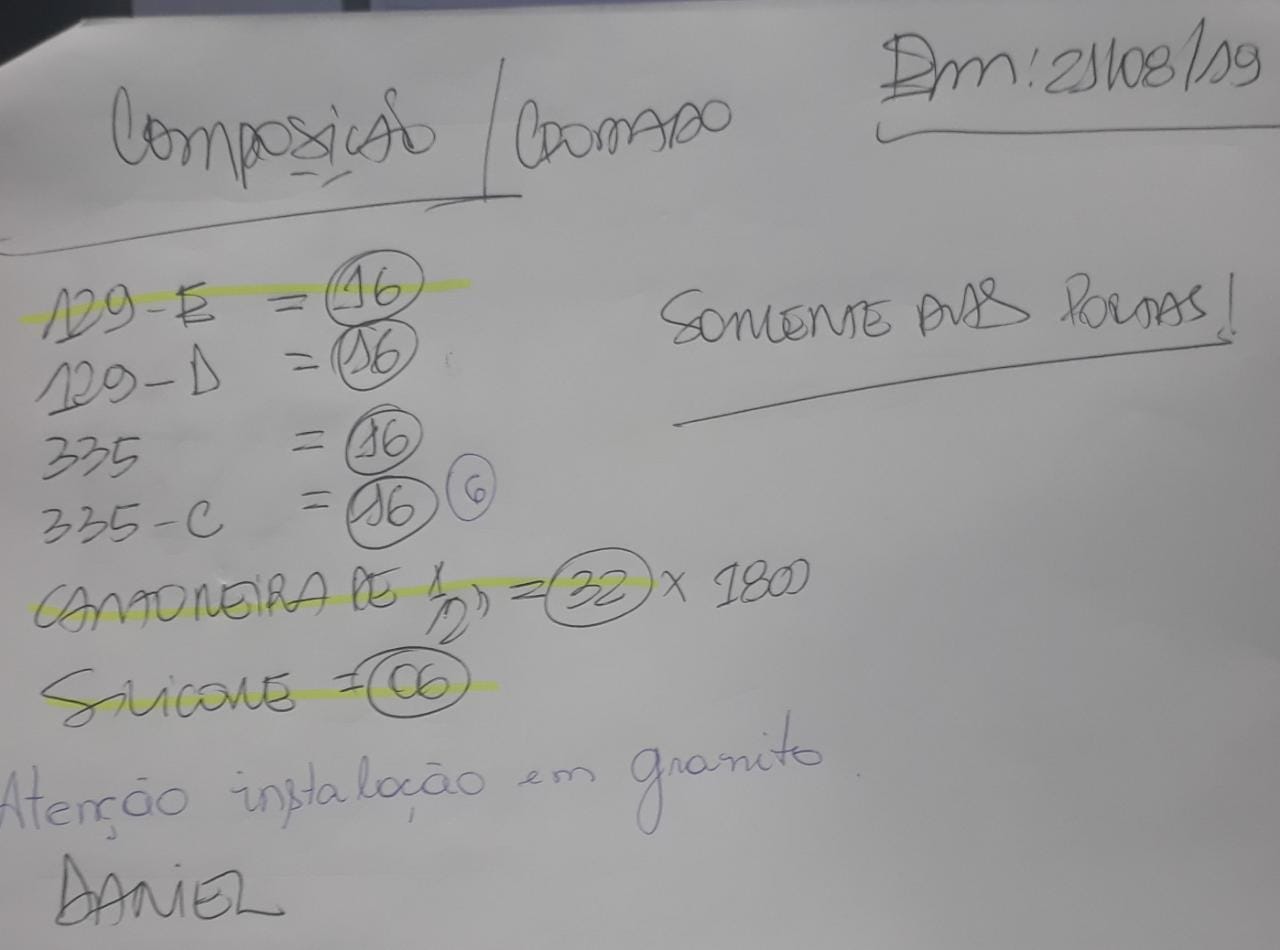 Em: 21/08/19
Composicão / Cromado
129-E = 16
129-D = 16
SOMENTE AS PORTAS!
335 = 16
335-C = 16 6
CANTONEIRA DE 1/2" = 32 x 1800
SILICONE = 06
Atenção instalação em granito.
DANIEL